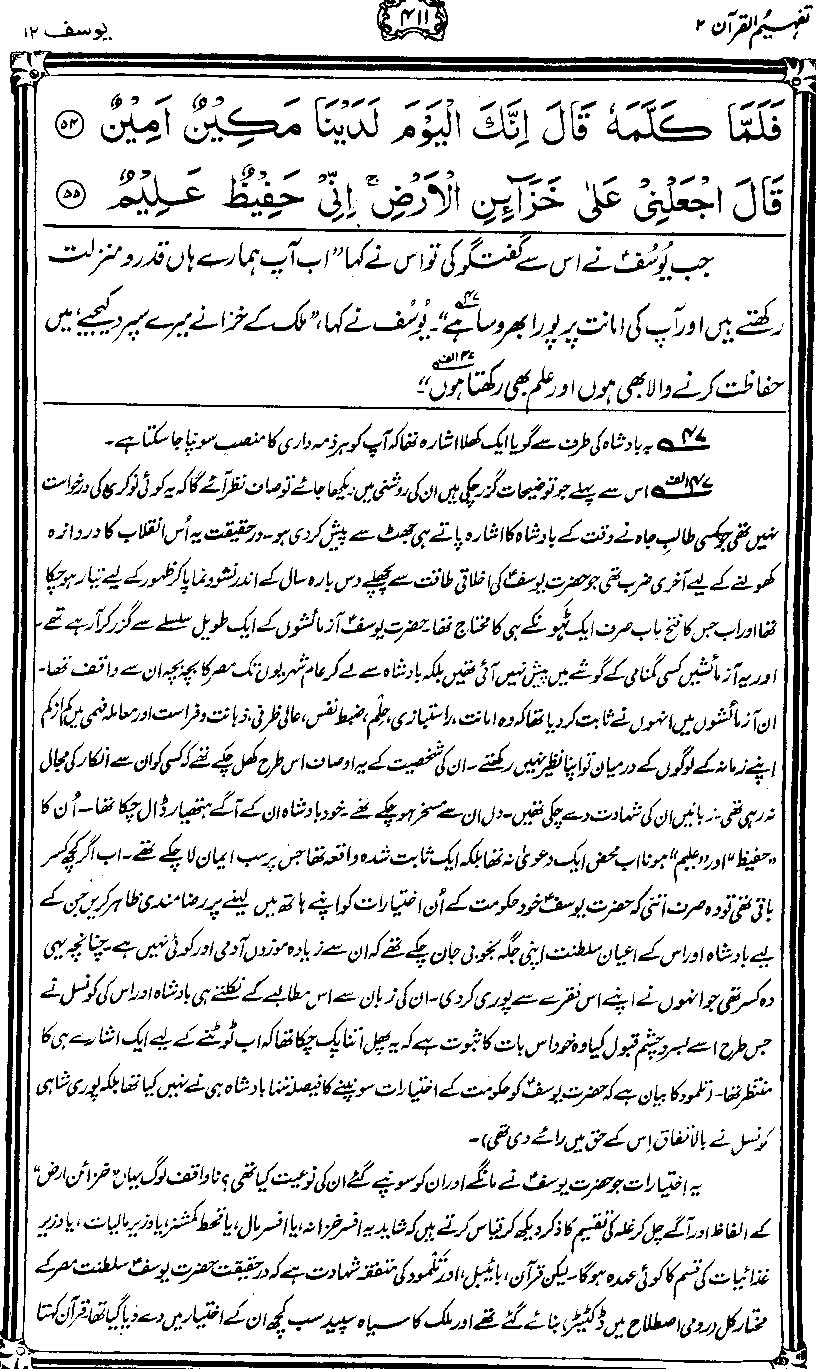 تفہیم القرآن ۲
۴۱۱
یوسف ۱۲
فَلَمَّا كَلَّمَهٗ قَالَ اِنَّكَ الْيَوْمَ لَدَيْنَا مَكِيْنٌ اَمِيْنٌ ﴿۵۴﴾
قَالَ اجْعَلْنِيْ عَلٰى خَزَآئِنِ الْاَرْضِ ۚ اِنِّيْ حَفِيْظٌ عَلِيْمٌ ﴿۵۵﴾
جب یوسفؑ نے اس سے گفتگو کی تو اس نے کہا ”اب آپ ہمارے ہاں قدر و منزلت
رکھتے ہیں اور آپ کی امانت پر پورا بھروسا ہے“۴۷۔ یوسفؑ نے کہا، ”ملک کے خزانے میرے سپرد کیجیے، میں
حفاظت کرنے والا بھی ہوں اور علم بھی رکھتا ہوں“۴۷الف
۴۷ یہ بادشاہ کی طرف سے گویا ایک کھلا اشارہ تھا کہ آپ کو ہر ذمہ داری کا منصب سونپا جا سکتا ہے۔
۴۷الف اس سے پہلے جو توضیحات گزر چکی ہیں ان کی روشنی میں دیکھا جائے تو صاف نظر آئے گا کہ یہ کوئی نوکری کی درخواست
نہیں تھی جو کسی طالبِ جاہ نے وقت کے بادشاہ کا اشارہ پاتے ہی جھٹ سے پیش کر دی ہو۔ درحقیقت یہ اُس انقلاب کا دروازہ
کھولنے کے لیے آخری ضرب تھی جو حضرت یوسفؑ کی اخلاقی طاقت سے پچھلے دس بارہ سال کے اندر نشوونما پا کر ظہور کے لیے تیار ہو چکا
تھا اور اب جس کا فتح باب صرف ایک ٹھونکے ہی کا محتاج تھا۔ حضرت یوسفؑ آزمائشوں کے ایک طویل سلسلے سے گزر کر آ رہے تھے۔
اور یہ آزمائشیں کسی گمنامی کے گوشے میں پیش نہیں آئی تھیں بلکہ بادشاہ سے لے کر عام شہریوں تک مصر کا بچہ بچہ ان سے واقف تھا۔
ان آزمائشوں میں انہوں نے ثابت کر دیا تھا کہ وہ امانت، راستبازی، حِلم، ضبطِ نفس، عالی ظرفی، ذہانت و فراست اور معاملہ فہمی میں کم از کم
اپنے زمانہ کے لوگوں کے درمیان تو اپنا نظیر نہیں رکھتے۔ ان کی شخصیت کے یہ اوصاف اس طرح کھل چکے تھے کہ کسی کو ان سے انکار کی مجال
نہ رہی تھی۔ زبانیں ان کی شہادت دے چکی تھیں۔ دل ان سے مسخر ہو چکے تھے۔ خود بادشاہ ان کے آگے ہتھیار ڈال چکا تھا۔ اُن کا
”حفیظ“ اور ”علیم“ ہونا اب محض ایک دعویٰ نہ تھا بلکہ ایک ثابت شدہ واقعہ تھا جس پر سب ایمان لا چکے تھے۔ اب اگر کچھ کسر
باقی تھی تو وہ صرف اتنی کہ حضرت یوسفؑ خود حکومت کے اُن اختیارات کو اپنے ہاتھ میں لینے پر رضامندی ظاہر کریں جن کے
لیے بادشاہ اور اس کے اعیان سلطنت اپنی جگہ بخوبی جان چکے تھے کہ ان سے زیادہ موزوں آدمی اور کوئی نہیں ہے۔ چنانچہ یہی
وہ کسر تھی جو انہوں نے اپنے اس فقرے سے پوری کر دی۔ ان کی زبان سے اس مطالبے کے نکلتے ہی بادشاہ اور اس کی کونسل نے
جس طرح اسے بسر و چشم قبول کیا وہ خود اس بات کا ثبوت ہے کہ یہ پھل اتنا پک چکا تھا کہ اب ٹوٹنے کے لیے ایک اشارے ہی کا
منتظر تھا۔ (تلمود کا بیان ہے کہ حضرت یوسفؑ کو حکومت کے اختیارات سونپنے کا فیصلہ تنہا بادشاہ ہی نے نہیں کیا تھا بلکہ پوری شاہی
کونسل نے بالاتفاق اِس کے حق میں رائے دی تھی)۔
یہ اختیارات جو حضرت یوسفؑ نے مانگے اور ان کو سونپے گئے ان کی نوعیت کیا تھی؟ ناواقف لوگ یہاں ”خزائن ارض“
کے الفاظ اور آگے چل کر غلہ کی تقسیم کا ذکر دیکھ کر قیاس کرتے ہیں کہ شاید یہ افسر خزانہ، یا افسر مال، یا قحط کمشنر، یا وزیر مالیات، یا وزیر
غذائیات کی قسم کا کوئی عہدہ ہوگا۔ لیکن قرآن، بائیبل، اور تلمود کی متفقہ شہادت ہے کہ درحقیقت حضرت یوسفؑ سلطنت مصر کے
مختار کل (رومی اصطلاح میں ڈکٹیٹر) بنائے گئے تھے اور ملک کا سیاہ سپید سب کچھ ان کے اختیار میں دے دیا گیا تھا۔ قرآن کہتا